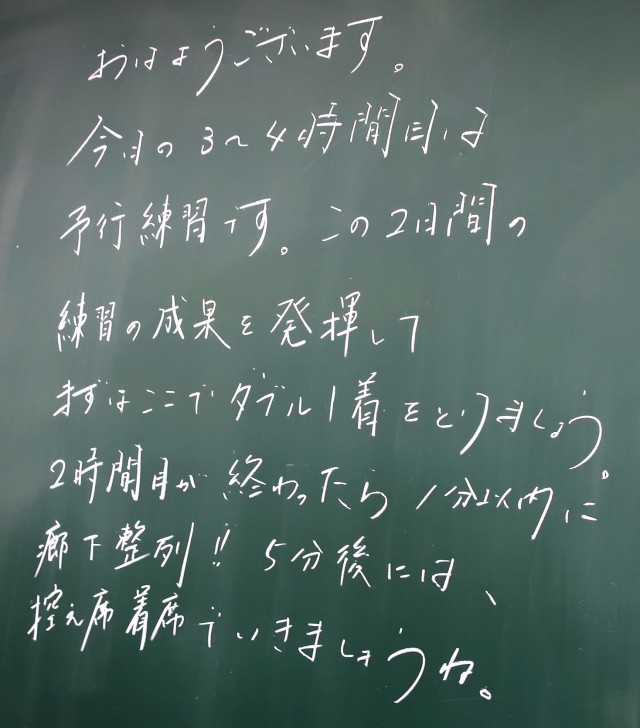 おはようございます。
今日の3～4時間目は
予行練習です。この2日間の
練習の成果を発揮して
まずはここでダブル1着をとりましょう。
2時間目が終わったら1分以内に
廊下整列!! 5分後には、
控え席着席でいきましょうね。